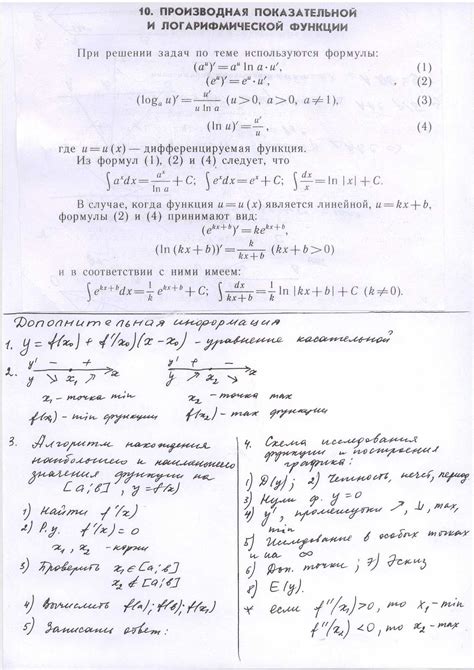 10. ПРОИЗВОДНАЯ ПОКАЗАТЕЛЬНОЙ
И ЛОГАРИФМИЧЕСКОЙ ФУНКЦИИ
При решении задач по теме используются формулы:
(aᵘ)′=aᵘ ln a·u′, (1)
(eᵘ)′=eᵘ·u′, (2)
(logₐ u)′= u′/(u ln a) (u>0, a>0, a≠1), (3)
(ln u)′= u′/u, (4)
где u=u(x) — дифференцируемая функция.
Из формул (1), (2) и (4) следует, что
∫aˣdx= aˣ/ln a +C; ∫eˣdx=eˣ+C; ∫dx/x=ln |x|+C.
В случае, когда функция u=u(x) является линейной, u=kx+b,
формулы (2) и (4) принимают вид:
(eᵏˣ⁺ᵇ)′=keᵏˣ⁺ᵇ,
(ln (kx+b))′= k/(kx+b) (kx+b>0)
и в соответствии с ними имеем:
∫eᵏˣ⁺ᵇdx= 1/k eᵏˣ⁺ᵇ+C; ∫dx/(kx+b)= 1/k ln |kx+b|+C (k≠0).
Дополнительная информация
1. y = f(x₀) + f′(x₀)(x-x₀) - уравнение касательной
2. y′ - + y′ + -
y ↘ x₁ ↗ x y ↗ x₂ ↘ x
x₁ - точка min x₂ - точка max
f(x₁) - min функции f(x₂) - max функции
3. Алгоритм нахождения
наибольшего и наименьшего
значения функции на
[a;в], y=f(x)
1) Найти f′(x)
2) Р.у. f′(x)=0
x₁, x₂ - корни
3) Проверить x₁∈[a;в]
x₂∉[a;в]
4) Вычислить f(a); f(в); f(x₁)
5) Записать ответ:
4. Схема исследования
функции и построения
графика:
1) D(y); 2) Четность, нечетн., период
3) Нули ф. y=0
4) y′, промежутки ↗, ↘, max,
min
5) Исследование в особых точках
и на ∞
6) Доп. точки; 7) Эскиз
8) E(y).
* если f″(x₁)>0, то x₁-min
f″(x₂)<0, то x₂-max